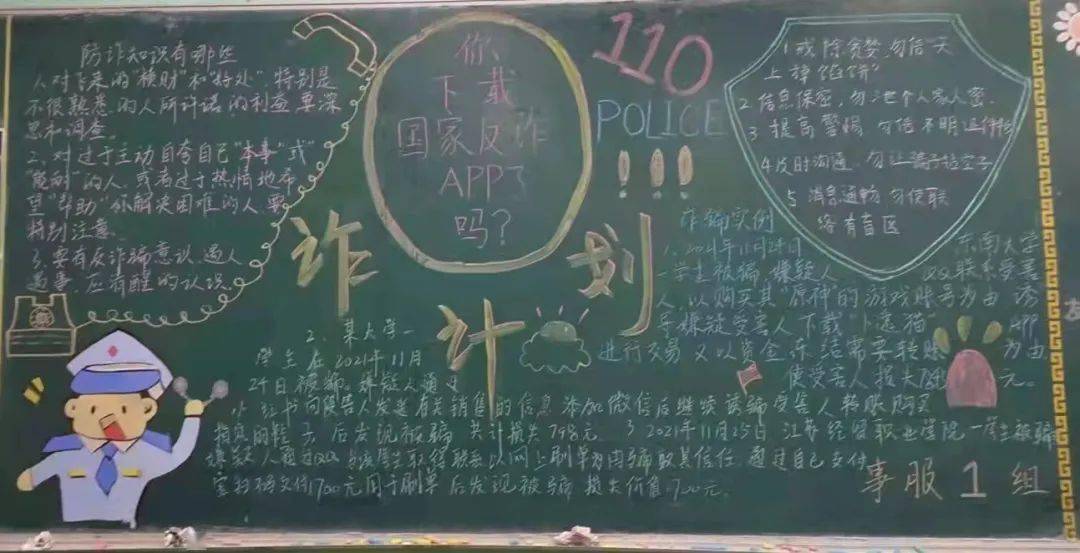 防诈知识有哪些
人对飞来的"横财"和"好处"特别是
不很熟悉的人所许诺的利益要深
思和调查
2、对过于主动自夸自己"本事"或
"能耐"的人,或者过于热情地希
望"帮助"你解决困难的人,要
特别注意
3.要有反诈骗意识,遇人
遇事,应有醒的认识.
你
下载
国家反诈
APP了
吗?
110
POLICE
!!!
1.戒除贪婪,勿信"天
上掉馅饼"
2信息保密,勿泄个人家人密.
3 提高警惕 勿信不明证件
4及时沟通,勿让骗子钻空子
5 消息通畅 勿使联
络有盲区
诈
计
划
诈骗实例
1.2021年11月24日 东南大学
一学生被骗 嫌疑人 QQ联系受害
人,以购买其"原神"的游戏账号为由 诱
导 受害人下载 APP
进行交易 又以资金冻结需要转账 为由
使受害人损失 元.
2、某大学一
学生在2021年11月
24日被骗,嫌疑人通过
小红书向 人发送有关销售的信息 添加微信后继续 骗受害人转账购买
指定的鞋子 后发现被骗 共计损失798元. 3 2021年11月25日 江苏经贸职业学院一学生被骗
嫌疑人通过QQ与该学生取得联系以网上刷单为由骗取其信任,通过自己支付
宝扫码支付1700元用于刷单 后发现被骗 损失价值1700元.
事服1组